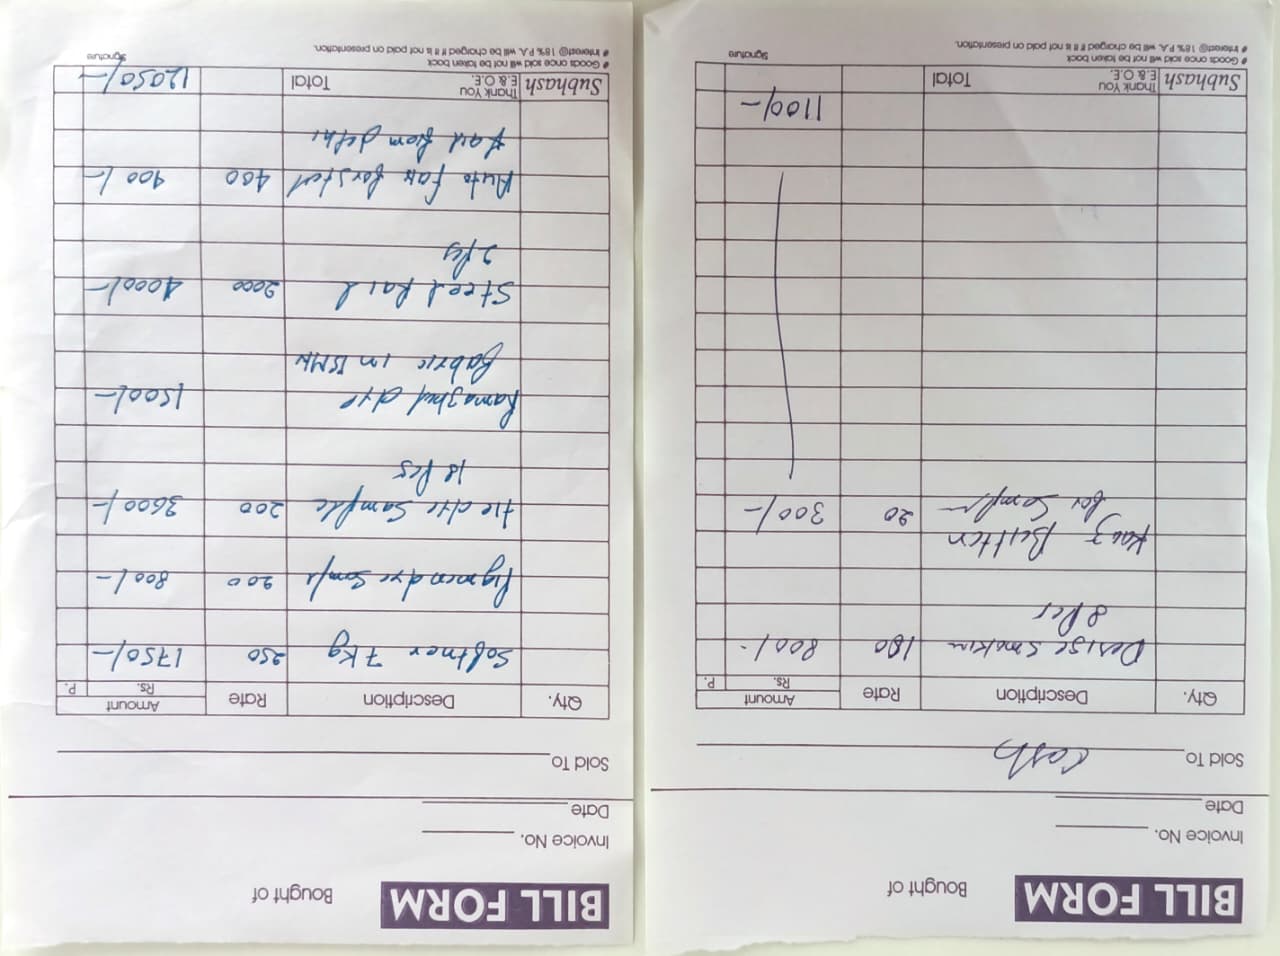 BILL FORM Bought of
Invoice No.
Date
Sold To Cash
Qty. Description Rate Amount
Rs. P.
Desige smokin 100 800/-
8 Pcs
Kaaz Button 20 300/-
for Sample
1100/-
Subhash Thank You
E.& O.E. Total
# Goods once sold will be not be taken back
# Interest@ 18% P.A. will be charged if it is not paid on presentation.
Signature
BILL FORM Bought of
Invoice No.
Date
Sold To
Qty. Description Rate Amount
Rs. P.
Softner 7 Kg 250 1750/-
Pigmen dye Sample 200 800/-
Tie dye Sample 200 3600/-
18 Pcs
dye 1500/-
Fabric in
Steel Rail 2000 4000/-
2 Pcs
Auto Fair for Steel 400 400/-
Rail from delhi
Subhash Thank You
E.& O.E. Total 12050/-
# Goods once sold will be not be taken back
# Interest@ 18% P.A. will be charged if it is not paid on presentation.
Signature